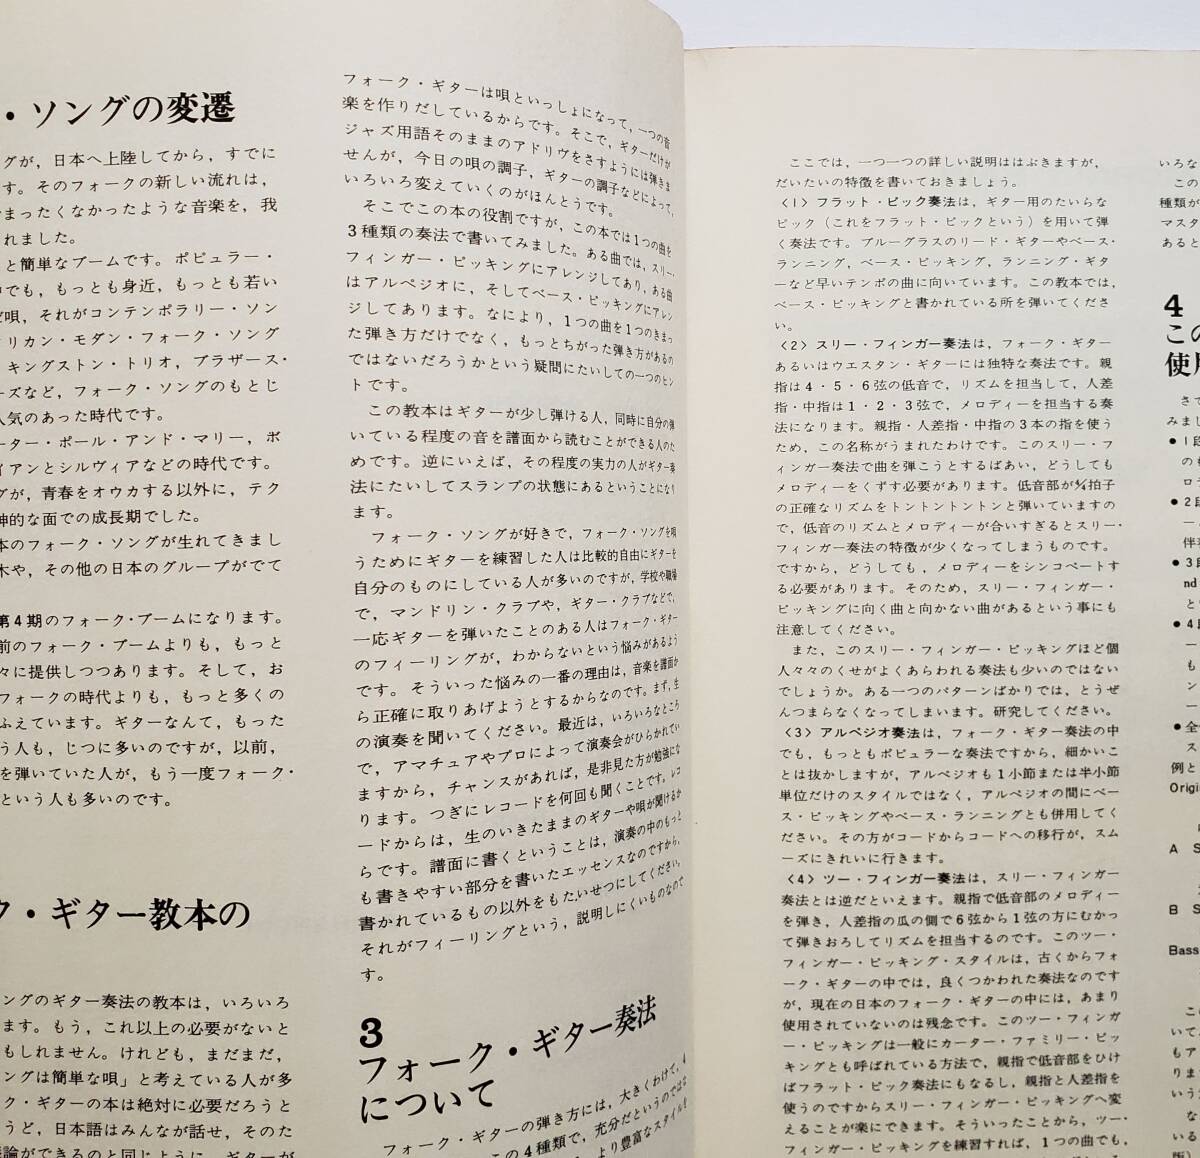 ・ソングの変遷
グが，日本へ上陸してから，すでに
す。そのフォークの新しい流れは，
まったくなかったような音楽を，我
れました。
と簡単なブームです。ポピュラー・
でも，もっとも身近，もっとも若い
唄，それがコンテンポラリー・ソン
リカン・モダン・フォーク・ソング
キングストン・トリオ，ブラザース・
ーズなど，フォーク・ソングのもとじ
人気のあった時代です。
ーター・ポール・アンド・マリー，ボ
イアンとシルヴィアなどの時代です。
グが，青春をオウカする以外に，テク
神的な面での成長期でした。
本のフォーク・ソングが生れてきまし
木や，その他の日本のグループがでて
第4期のフォーク・ブームになります。
前のフォーク・ブームよりも，もっと
々に提供しつつあります。そして，お
フォークの時代よりも，もっと多くの
ふえています。ギターなんて，もった
う人も，じつに多いのですが，以前，
を弾いていた人が，もう一度フォーク・
という人も多いのです。
ク・ギター教本の
ングのギター奏法の教本は，いろいろ
ます。もう，これ以上の必要がないと
もしれません。けれども，まだまだ，
ングは簡単な唄」と考えている人が多
ク・ギターの本は絶対に必要だろうと
うど，日本語はみんなが話せ，そのた
論ができるのと同じように，ギターが
フォーク・ギターは唄といっしょになって，一つの音
楽を作りだしているからです。そこで，ギターだけが
ジャズ用語そのままのアドリヴをさすようには弾きま
せんが，今日の唄の調子，ギターの調子などによって，
いろいろ変えていくのがほんとうです。
そこでこの本の役割ですが，この本では1つの曲を
3種類の奏法で書いてみました。ある曲では，スリー・
フィンガー・ピッキングにアレンジしてあり，ある曲
はアルペジオに，そしてベース・ピッキングにアレン
ジしてあります。なにより，1つの曲を1つのきまっ
った弾き方だけでなく，もっとちがった弾き方があるの
ではないだろうかという疑問にたいしての一つのヒン
トです。
この教本はギターが少し弾ける人，同時に自分の弾
いている程度の音を譜面から読むことができる人のた
めです。逆にいえば，その程度の実力の人がギター奏
法にたいしてスランプの状態にあるということになり
ます。
フォーク・ソングが好きで，フォーク・ソングを唄
うためにギターを練習した人は比較的自由にギターを
自分のものにしている人が多いのですが，学校や職場
で，マンドリン・クラブや，ギター・クラブなどで，
一応ギターを弾いたことのある人はフォーク・ギター
のフィーリングが，わからないという悩みがあるよう
です。そういった悩みの一番の理由は，音楽を譜面か
ら正確に取りあげようとするからなのです。まず，生
の演奏を聞いてください。最近は，いろいろなところ
で，アマチュアやプロによって演奏会がひらかれてい
ますから，チャンスがあれば，是非見た方が勉強にな
ります。つぎにレコードを何回も聞くことです。レコ
ードからは，生のいきたままのギターや唄が聞けるか
らです。譜面に書くということは，演奏の中のもっと
も書きやすい部分を書いたエッセンスなのですから，
書かれているもの以外をもたいせつにしてください。
それがフィーリングという，説明しにくいものなので
す。
3
フォーク・ギター奏法
について
フォーク・ギターの弾き方には，大きくわけて，4
この4種類で，充分だというのではな
より豊富なスタイルを
ここでは，一つ一つの詳しい説明ははぶきますが，
だいたいの特徴を書いておきましょう。
〈1〉フラット・ピック奏法は，ギター用のたいらな
ピック（これをフラット・ピックという）を用いて弾
く奏法です。ブルーグラスのリード・ギターやベース・
ランニング，ベース・ピッキング，ランニング・ギタ
ーなど早いテンポの曲に向いています。この教本では，
ベース・ピッキングと書かれている所を弾いてくださ
い。
〈2〉スリー・フィンガー奏法は，フォーク・ギター
あるいはウエスタン・ギターには独特な奏法です。親
指は4・5・6弦の低音で，リズムを担当して，人差
指・中指は1・2・3弦で，メロディーを担当する奏
法になります。親指・人差指・中指の3本の指を使う
ため，この名称がうまれたわけです。このスリー・フ
ィンガー奏法で曲を弾こうとするばあい，どうしても
メロディーをくずす必要があります。低音部が4/4拍子
の正確なリズムをトントントントンと弾いていますの
で，低音のリズムとメロディーが合いすぎるとスリー・
フィンガー奏法の特徴が少くなってしまうものです。
ですから，どうしても，メロディーをシンコペートす
る必要があります。そのため，スリー・フィンガー・
ピッキングに向く曲と向かない曲があるという事にも
注意してください。
また，このスリー・フィンガー・ピッキングほど個
人々々のくせがよくあらわれる奏法も少いのではない
でしょうか。ある一つのパターンばかりでは，とうぜ
んつまらなくなってしまいます。研究してください。
〈3〉アルペジオ奏法は，フォーク・ギター奏法の中
でも，もっともポピュラーな奏法ですから，細かいこ
とは抜かしますが，アルペジオも1小節または半小節
単位だけのスタイルではなく，アルペジオの間にベー
ス・ピッキングやベース・ランニングとも併用してく
ださい。その方がコードからコードへの移行が，スム
ーズにきれいに行きます。
〈4〉ツー・フィンガー奏法は，スリー・フィンガー
奏法とは逆だといえます。親指で低音部のメロディー
を弾き，人差指の瓜の側で6弦から1弦の方にむかっ
て弾きおろしてリズムを担当するのです。このツー・
フィンガー・ピッキング・スタイルは，古くからフォ
ーク・ギターの中では，良くつかわれた奏法なのです
が，現在の日本のフォーク・ギターの中には，あまり
使用されていないのは残念です。このツー・フィンガ
ー・ピッキングは一般にカーター・ファミリー・ピッ
キングとも呼ばれている方法で，親指で低音部をひけ
ばフラット・ピック奏法にもなるし，親指と人差指を
使うのですからスリー・フィンガー・ピッキングへ変
えることが楽にできます。そういったことから，ツー・
フィンガー・ピッキングを練習すれば，1つの曲でも，
いろな
この
種類が
マスタ
あると
4
この
使用
さて
みまし
●1段
のも
ロデ
●2段
ー・
伴奏
●3段
nd
と
●4段
ー
も
ン
ー
●全
ス
例と
Origin
A S
B S
Bass
こ
いて
もア
りま
いう
な
いる